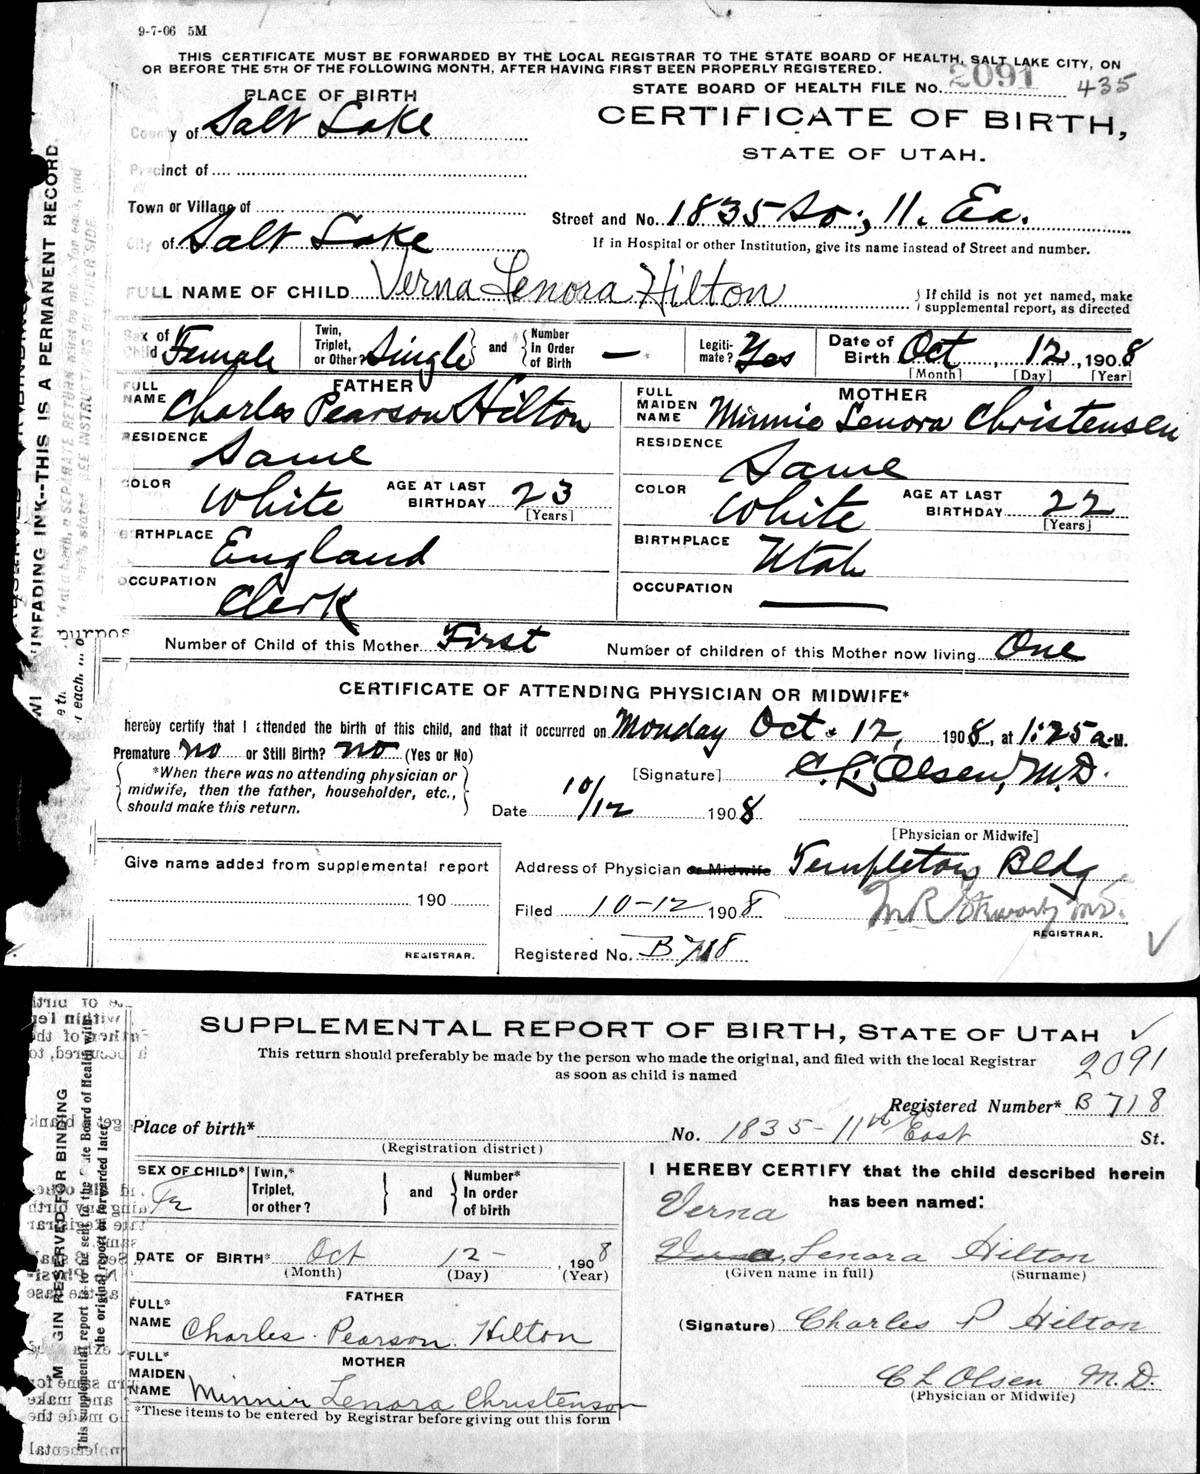 9-7-06 5M
THIS CERTIFICATE MUST BE FORWARDED BY THE LOCAL REGISTRAR TO THE STATE BOARD OF HEALTH, SALT LAKE CITY, ON
OR BEFORE THE 5TH OF THE FOLLOWING MONTH, AFTER HAVING FIRST BEEN PROPERLY REGISTERED.
STATE BOARD OF HEALTH FILE No. 2091 435
PLACE OF BIRTH
CERTIFICATE OF BIRTH,
STATE OF UTAH.
County of Salt Lake
Precinct of
Town or Village of
Street and No. 1835 So., 11. Ea.
City of Salt Lake
If in Hospital or other Institution, give its name instead of Street and number.
FULL NAME OF CHILD Verna Lenora Hilton
If child is not yet named, make
supplemental report, as directed
Sex of Child Female
Twin, Triplet, or Other? Single and Number In Order of Birth —
Legiti-mate? Yes
Date of Birth Oct 12, 1908
[Month] [Day] [Year]
FATHER
FULL NAME Charles Pearson Hilton
RESIDENCE Same
COLOR White AGE AT LAST BIRTHDAY 23
[Years]
BIRTHPLACE England
OCCUPATION Clerk
MOTHER
FULL MAIDEN NAME Minnie Lenora Christensen
RESIDENCE Same
COLOR White AGE AT LAST BIRTHDAY 22
[Years]
BIRTHPLACE Utah
OCCUPATION —
Number of Child of this Mother First Number of children of this Mother now living One
CERTIFICATE OF ATTENDING PHYSICIAN OR MIDWIFE*
hereby certify that I attended the birth of this child, and that it occurred on Monday Oct. 12, 1908, at 1:25 a.M.
Premature no or Still Birth? no (Yes or No)
*When there was no attending physician or
midwife, then the father, householder, etc.,
should make this return.
[Signature] C. L. Olsen, M.D.
Date 10/12 1908
[Physician or Midwife]
Give name added from supplemental report
190
REGISTRAR.
Address of Physician or Midwife Templeton Bldg
Filed 10-12 1908 M R Stewart M.D.
REGISTRAR.
Registered No. B 718
UNFADING INK--THIS IS A PERMANENT RECORD.
SUPPLEMENTAL REPORT OF BIRTH, STATE OF UTAH
This return should preferably be made by the person who made the original, and filed with the local Registrar
as soon as child is named
2091
Registered Number* B 718
Place of birth* No. 1835 - 11th East St.
(Registration district)
SEX OF CHILD*
Twin,* Triplet, or other? and Number* In order of birth
DATE OF BIRTH* Oct 12 - 1908
(Month) (Day) (Year)
FATHER
FULL* NAME Charles Pearson Hilton
MOTHER
FULL* MAIDEN NAME Minnie Lenora Christenson
*These items to be entered by Registrar before giving out this form
I HEREBY CERTIFY that the child described herein
has been named:
Verna
Verna, Lenora Hilton
(Given name in full) (Surname)
(Signature) Charles P Hilton
C L Olsen M.D.
(Physician or Midwife)
GIN RESERVED FOR BINDING